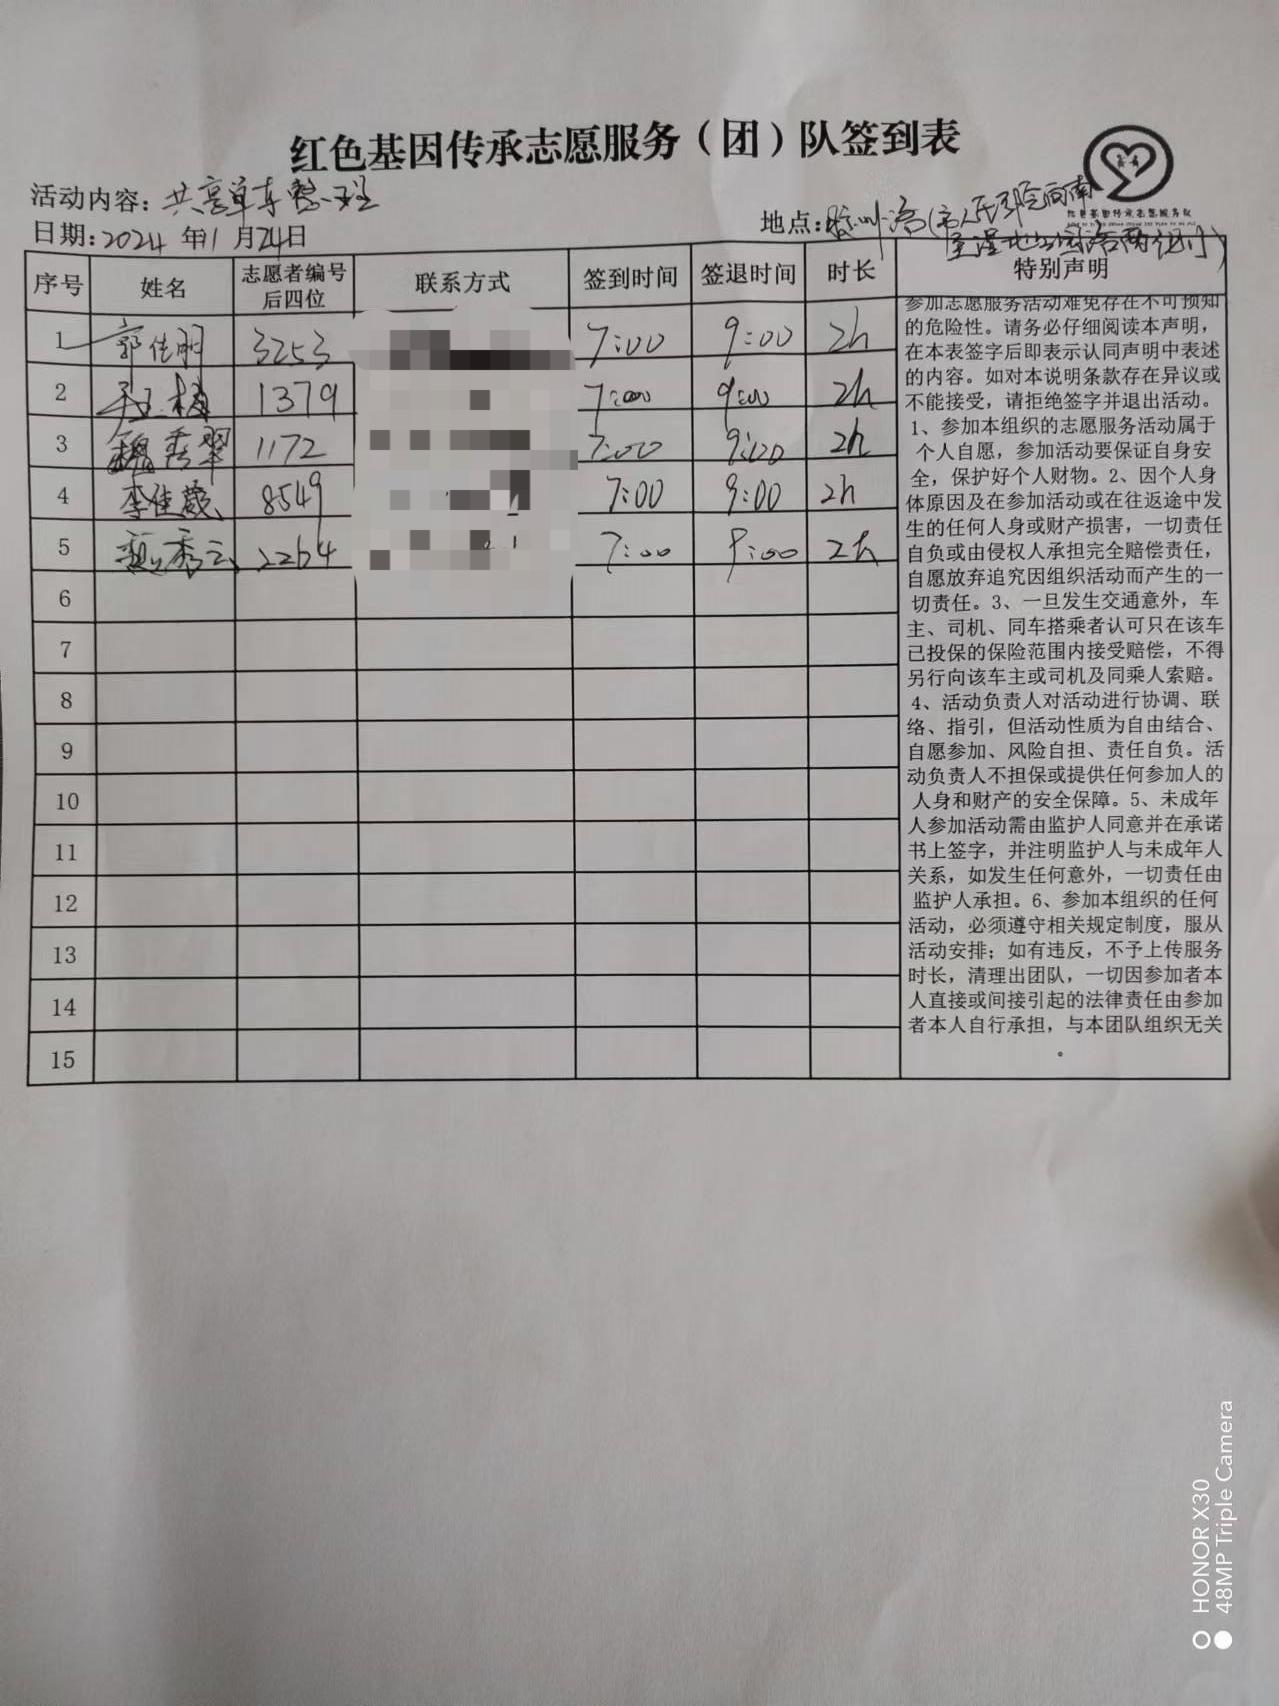 红色基因传承志愿服务（团）队签到表
活动内容：共享单车整理
日期：2024年1月24日
地点：
序号 姓名 志愿者编号后四位 联系方式 签到时间 签退时间 时长 特别声明
1 郭佳明 3253 7:00 9:00 2h
2 1379 7:00 9:00 2h
3 魏秀翠 1172 7:00 9:00 2h
4 李佳葳 8549 7:00 9:00 2h
5 秀云 2264 7:00 9:00 2h
6
7
8
9
10
11
12
13
14
15
参加志愿服务活动难免存在不可预知
的危险性。请务必仔细阅读本声明，
在本表签字后即表示认同声明中表述
的内容。如对本说明条款存在异议或
不能接受，请拒绝签字并退出活动。
1、参加本组织的志愿服务活动属于
个人自愿，参加活动要保证自身安
全，保护好个人财物。2、因个人身
体原因及在参加活动或在往返途中发
生的任何人身或财产损害，一切责任
自负或由侵权人承担完全赔偿责任，
自愿放弃追究因组织活动而产生的一
切责任。3、一旦发生交通意外，车
主、司机、同车搭乘者认可只在该车
已投保的保险范围内接受赔偿，不得
另行向该车主或司机及同乘人索赔。
4、活动负责人对活动进行协调、联
络、指引，但活动性质为自由结合、
自愿参加、风险自担、责任自负。活
动负责人不担保或提供任何参加人的
人身和财产的安全保障。5、未成年
人参加活动需由监护人同意并在承诺
书上签字，并注明监护人与未成年人
关系，如发生任何意外，一切责任由
监护人承担。6、参加本组织的任何
活动，必须遵守相关规定制度，服从
活动安排；如有违反，不予上传服务
时长，清理出团队，一切因参加者本
人直接或间接引起的法律责任由参加
者本人自行承担，与本团队组织无关
。
HONOR X30
48MP Triple Camera